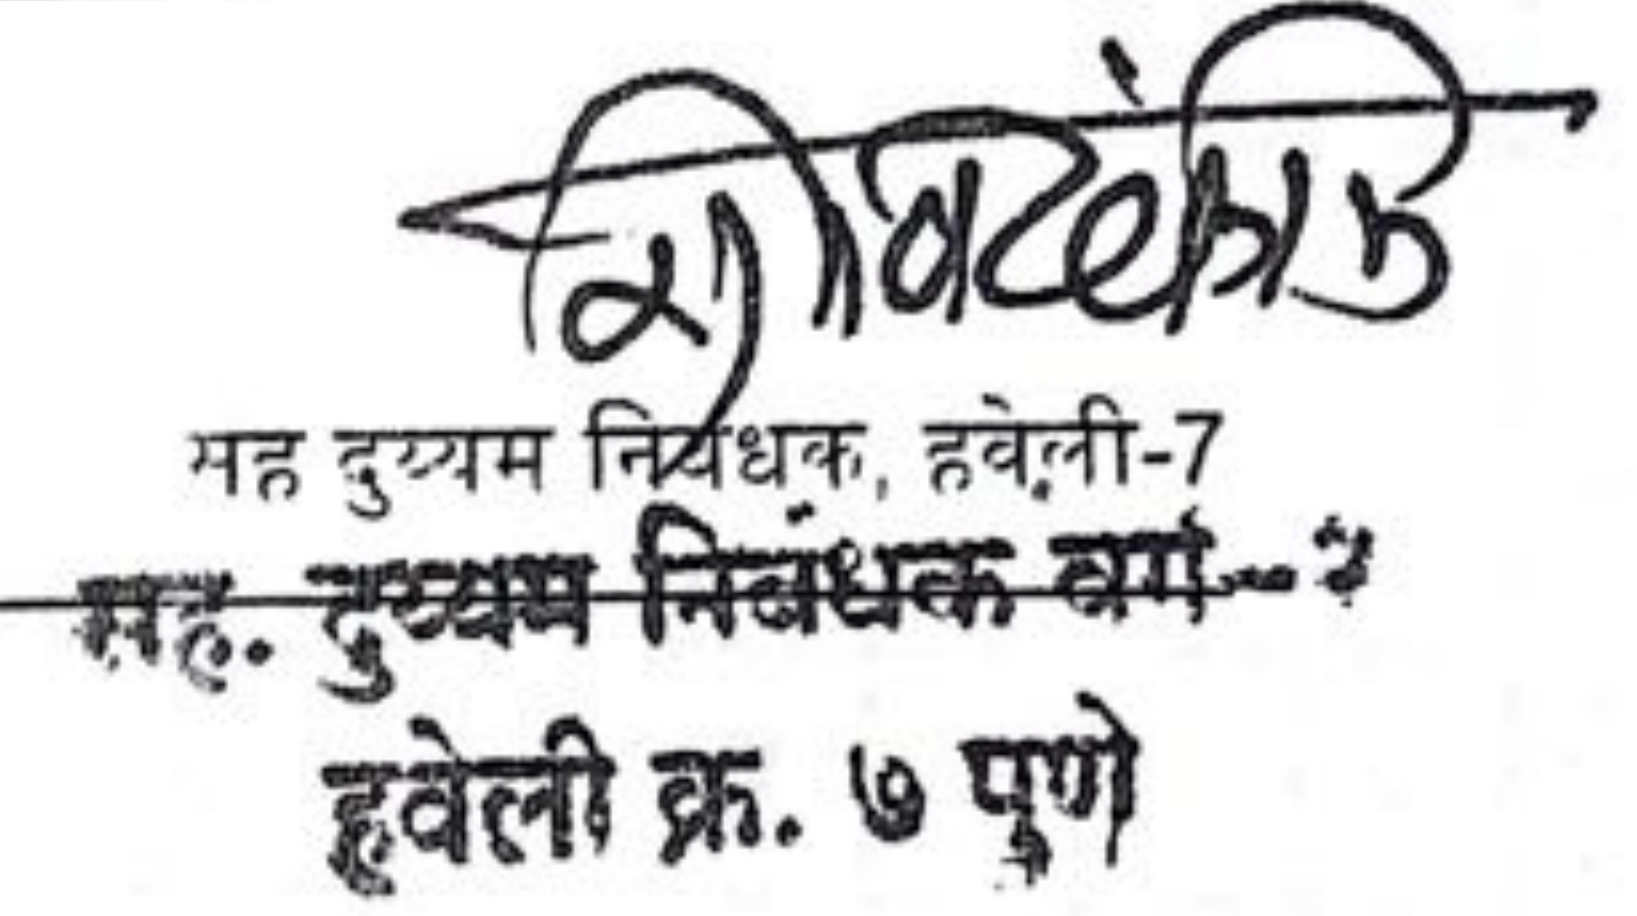 सह दुय्यम निबंधक, हवेली-7
सह. दुय्यम निबंधक वर्ग-२
हवेली क्र. ७ पुणे